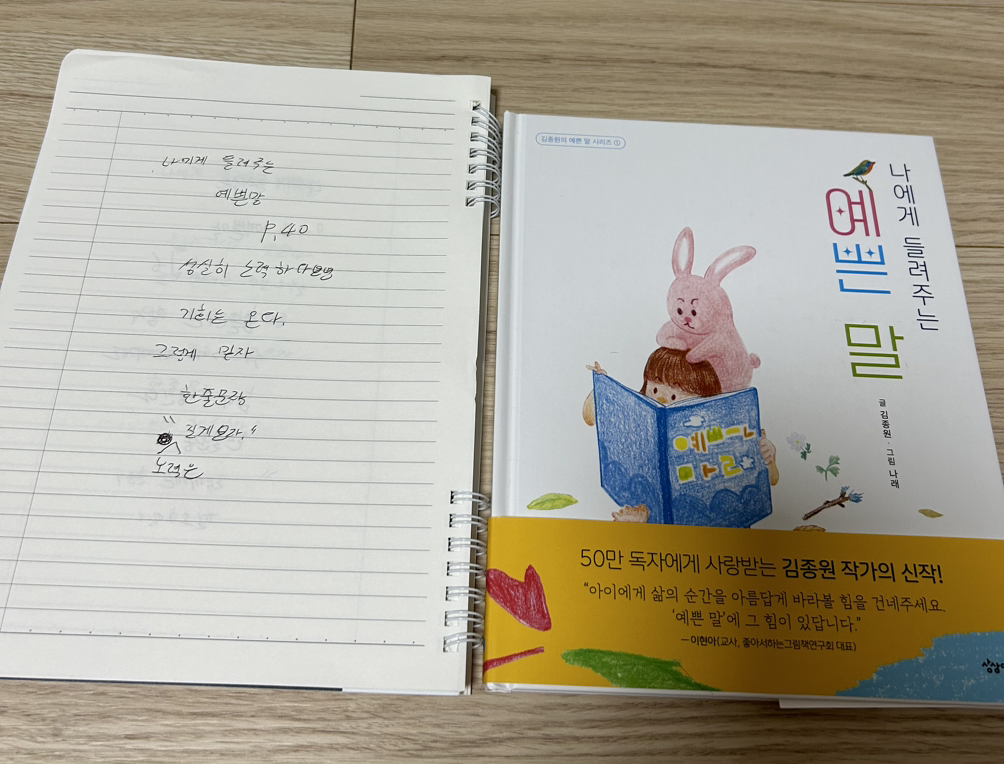 나에게 들려주는
예쁜말
P.40
성실히 노력하다보면
기회는 온다.
그렇게 믿자
한줄문장
노력은
김종원의 예쁜 말 시리즈 ①
나에게 들려주는
예쁜 말
글 김종원 · 그림 나래
예쁘ㄴ
마ㄹ
50만 독자에게 사랑받는 김종원 작가의 신작!
“아이에게 삶의 순간을 아름답게 바라볼 힘을 건네주세요.
‘예쁜 말’에 그 힘이 있답니다.”
—이현아(교사, 좋아서하는그림책연구회 대표)